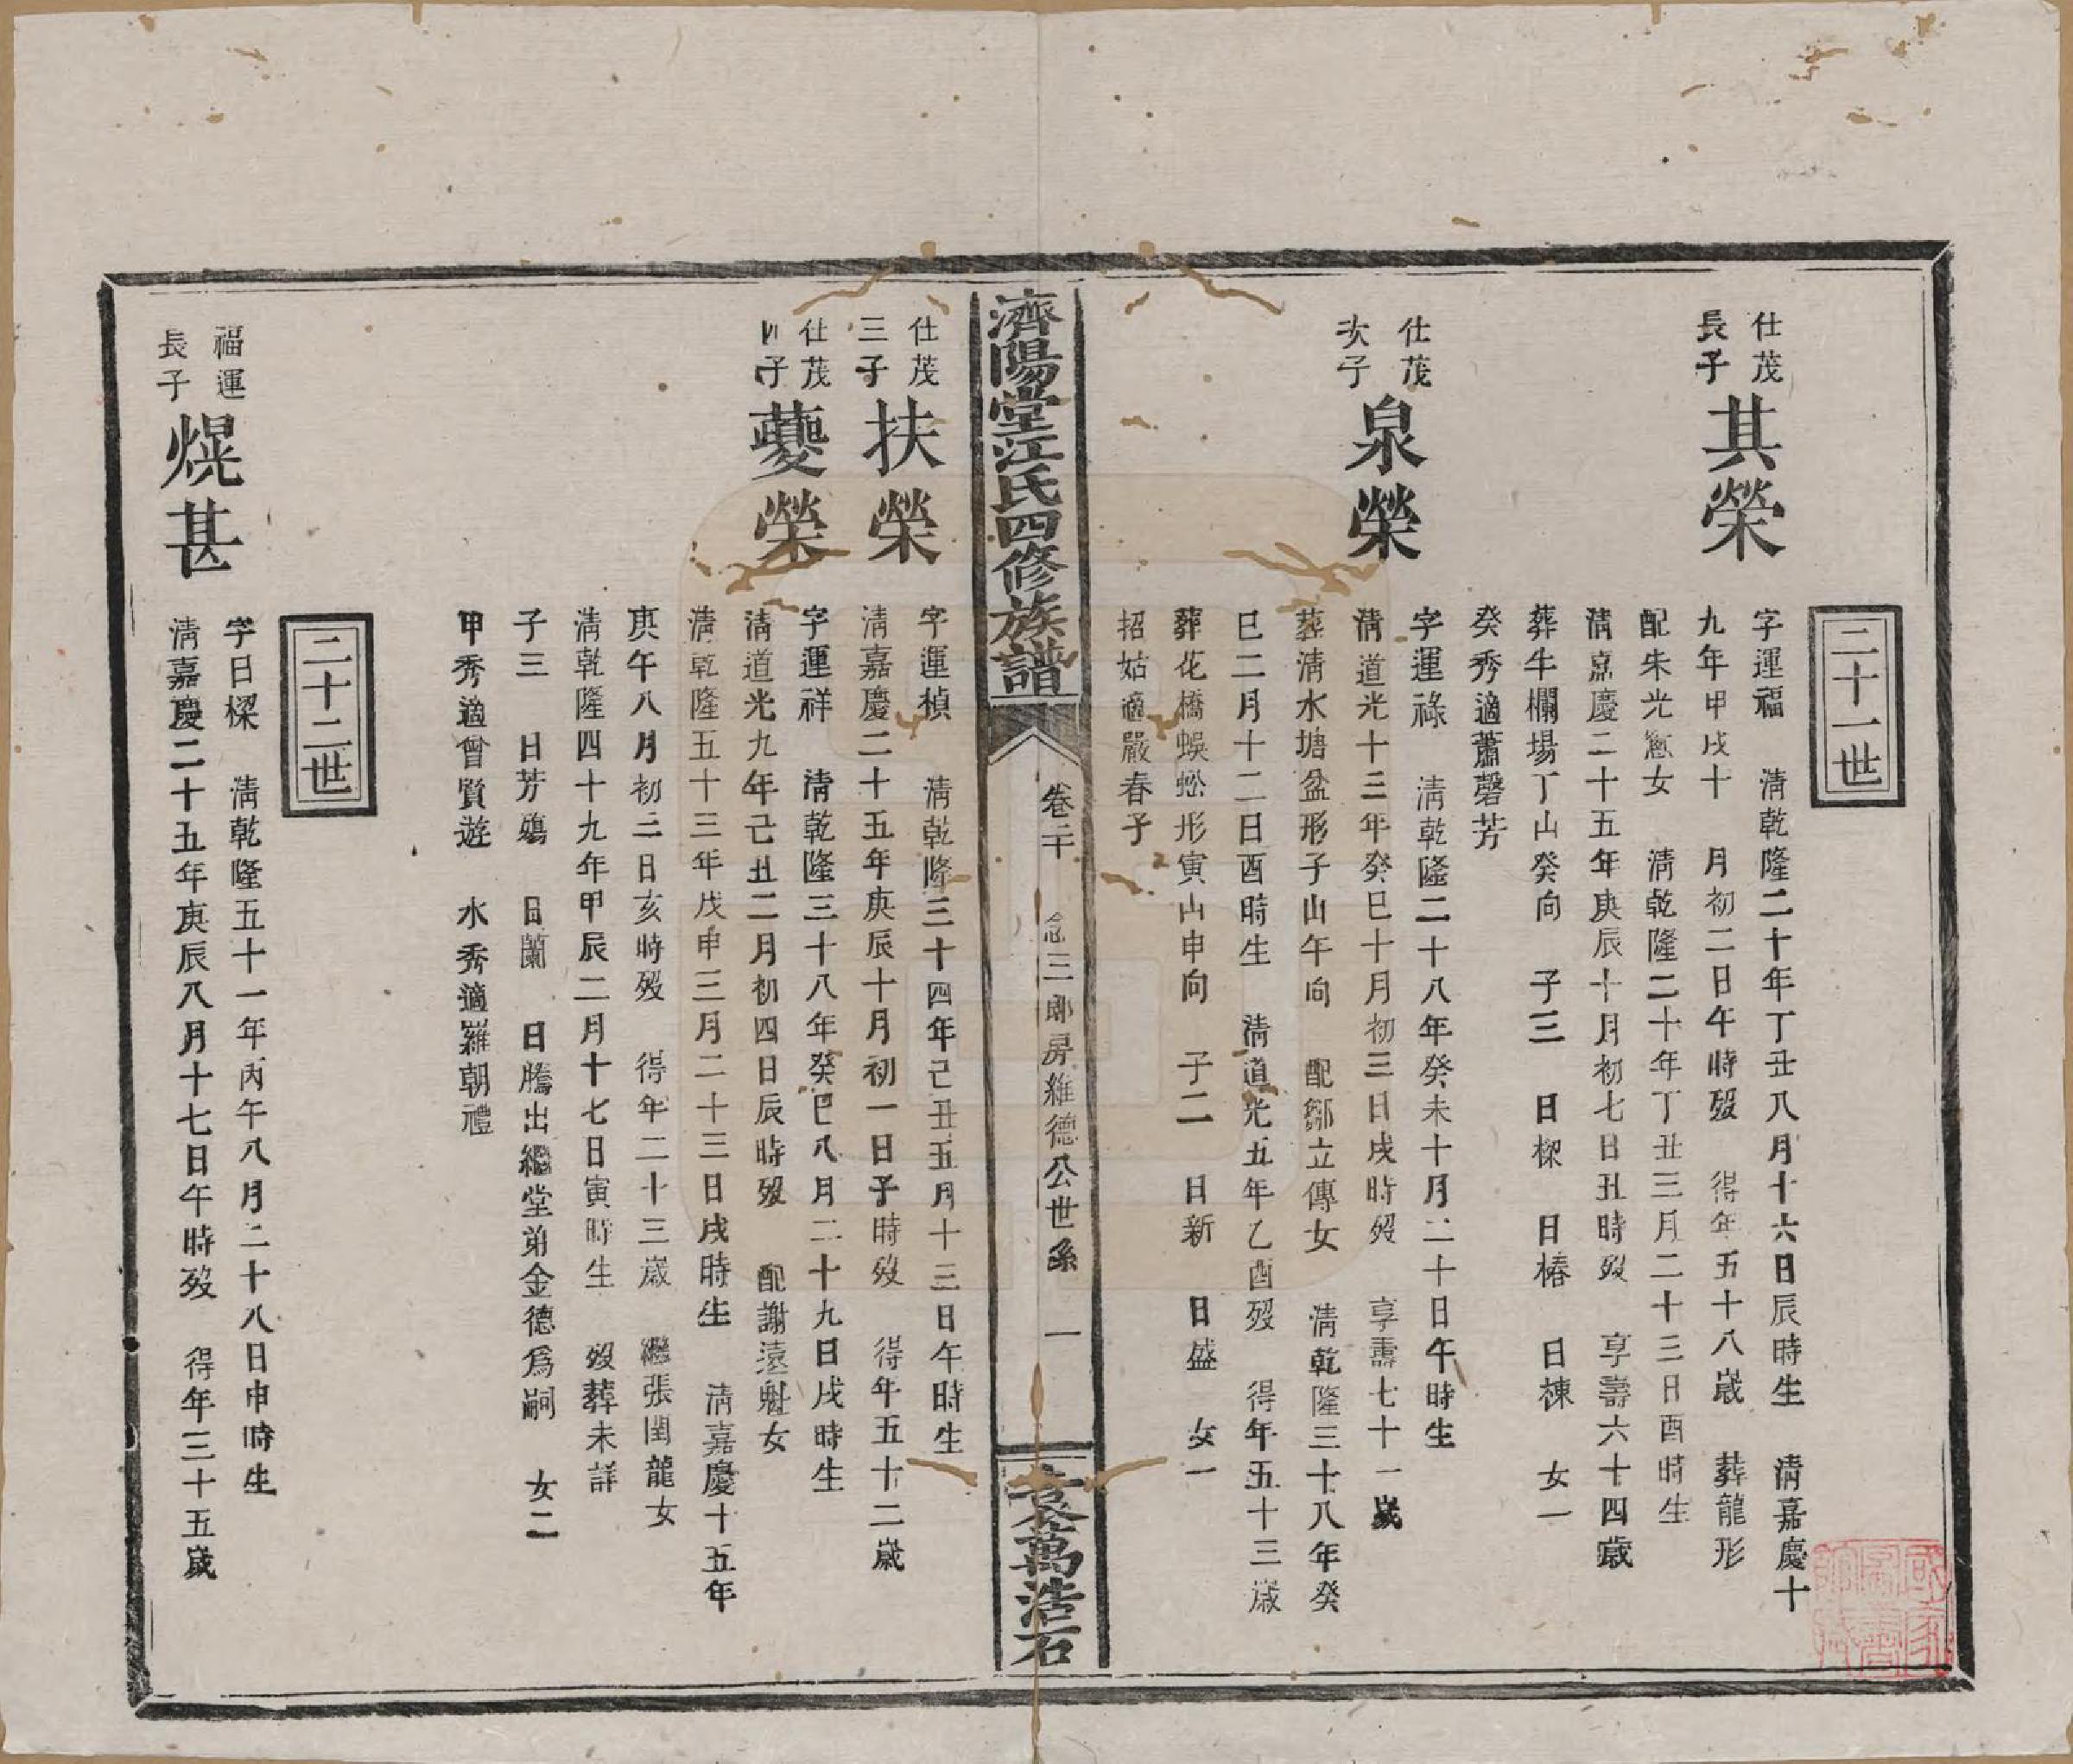 二十一世
仕茂
長子
其榮
字運福 清乾隆二十年丁丑八月十六日辰時生 清嘉慶十
九年甲戌十 月初二日午時歿 得年五十八歲 葬龍形
配朱光 女 清乾隆二十年丁丑三月二十三日酉時生
清嘉慶二十五年庚辰十月初七日丑時歿 享壽六十四歲
葬牛欄場丁山癸向 子三 日樑 日椿 日棟 女一
癸秀適蕭磬芳
仕茂
次子
泉榮
字運祿 清乾隆二十八年癸未十月二十日午時生
清道光十三年癸巳十月初三日戌時歿 享壽七十一歲
葬清水塘盆形子山午向 配鄒立傳女 清乾隆三十八年癸
巳二月十二日酉時生 清道光五年乙酉歿 得年五十三歲
葬花橋蜈蚣形寅山申向 子二 日新 日盛 女一
招姑適嚴春子
濟陽堂江氏四修族譜
卷二十 念三郎房維德公世系 一
袁萬浩石
仕茂
三子
扶榮
字運楨 清乾隆三十四年己丑五月十三日午時生
清嘉慶二十五年庚辰十月初一日子時歿 得年五十二歲
仕茂
四子
夔榮
字運祥 清乾隆三十八年癸巳八月二十九日戌時生
清道光九年己丑二月初四日辰時歿 配謝遠魁女
清乾隆五十三年戊申三月二十三日戌時生 清嘉慶十五年
庚午八月初二日亥時歿 得年二十三歲 繼張閏龍女
清乾隆四十九年甲辰二月十七日寅時生 歿葬未詳
子三 日芳殤 日蘭 日騰出繼堂弟金德爲嗣 女二
甲秀適曾賢遊 水秀適羅朝禮
二十二世
福運
長子
熀甚
字日樑 清乾隆五十一年丙午八月二十八日申時生
清嘉慶二十五年庚辰八月十七日午時歿 得年三十五歲